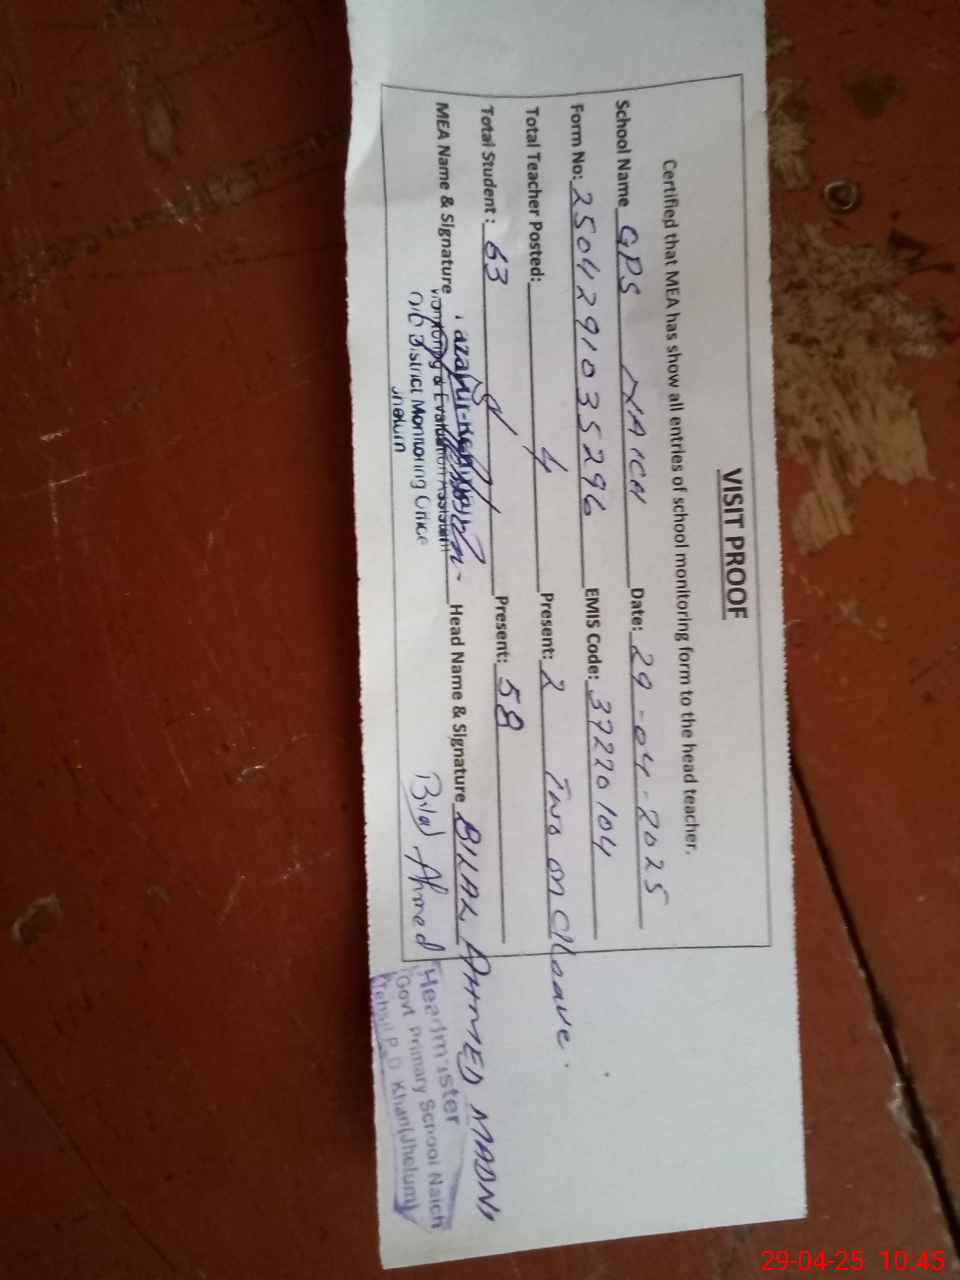 VISIT PROOF
Certified that MEA has show all entries of school monitoring form to the head teacher.
School Name GPS NAICH Date: 29-04-2025
Form No: 2504291035296 EMIS Code: 37220104
Total Teacher Posted: 4 Present: 2 Two on Leave.
Total Student: 63 Present: 58
MEA Name & Signature Head Name & Signature BILAL AHMED MADNI
Monitoring & Evaluation Assistant
O/O District Monitoring Office
Jhelum
Bilal Ahmed
Headmaster
Govt Primary School Naich
Tehsil P.D Khan(Jhelum)
29-04-25 10.45